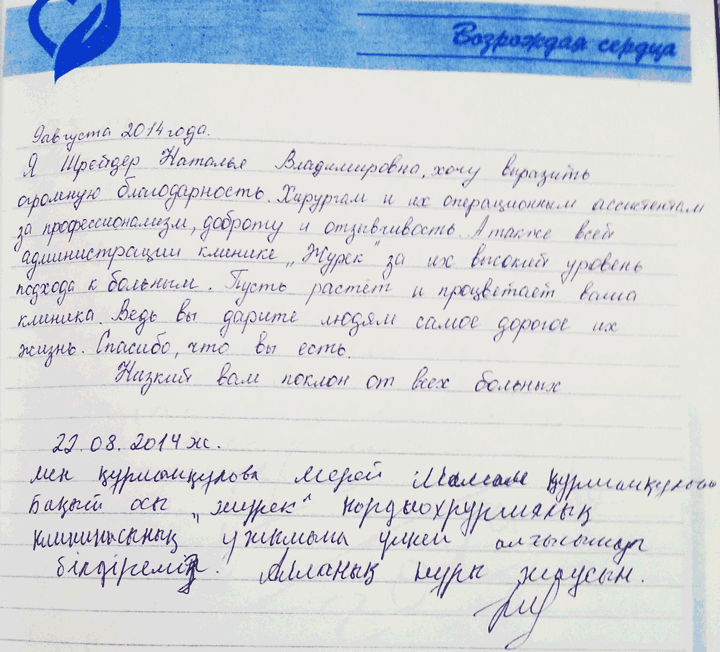 Возрождая сердца
9августа 2014 года.
Я Шрейдер Наталья Владимировна, хочу выразить
огромную благодарность. Хирургам и их операционным ассистентам
за профессионализм, доброту и отзывчивость. А также всей
администрации клинике „Жүрек" за их высокий уровень
подхода к больным. Пусть растёт и процветает ваша
клиника. Ведь вы дарите людям самое дорогое их
жизнь. Спасибо, что вы есть.
Низкий вам поклон от всех больных
22.08.2014ж.
Мен Құрманқулова Мерей Құрманқулова
Бақыт осы „жүрек" кордиохрургиялық
клиникасының ұжымына үлкен алғысымызды
білдіреміз. Алланың нұры жаусын.